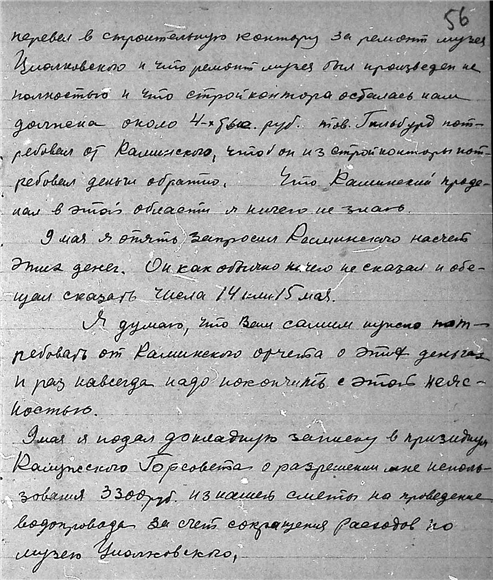 56
перевел в строительную контору за ремонт музея
Циолковского и что ремонт музея был произведен не
полностью и что стройконтора осталась нам
должена около 4-х тыс. руб. тов. Гильбурд пот-
ребовал от Каминского, чтоб он из стройконторы пот-
ребовал деньги обратно. Что Каминский проде-
лал в этой области я ничего не знаю.
9 мая я опять запросил Каминского насчет
этих денег. Он как обычно ничего не сказал и обе-
щал сказать числа 14 или 15 мая.
Я думаю, что Вам самим нужно пот-
ребовать от Каминского отчета о этих деньгах
и раз навсегда надо покончить с этой неяс-
ностью.
9 мая я подал докладную записку в призидиум
Калужского Горсовета о разрешении мне исполь-
зования 3300 руб. из нашей сметы на проведение
водопровода за счет сокращения расходов по
музею Циолковского,